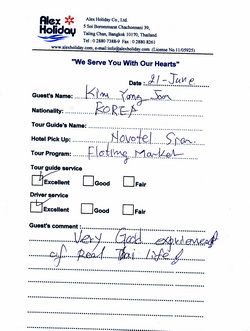 Alex
Holiday
Alex Holiday Co., Ltd.
5 Soi Borommarat Chachonnani 39,
Taling Chan, Bangkok 10170, Thailand
Tel : 0 2880 7388-9 Fax : 0 2880 8261
www.alexholiday.com, e-mail : info@alexholiday.com (License No.11/05925)
"We Serve You With Our Hearts"
Date : 21-June
Guest's Name: Kim Yong Jun
Nationality: KOREA
Tour Guide's Name:
Hotel Pick Up: Novotel Siam.
Tour Program: Floting Market
Tour guide service
Excellent Good Fair
Driver service
Excellent Good Fair
Guest's comment :
Very Good experienced
of Real Thai life